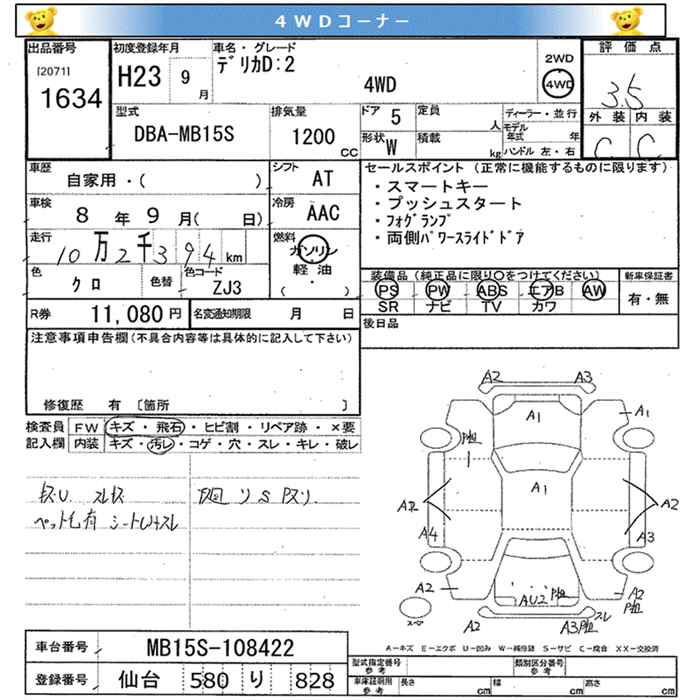 4WDコーナー
出品番号 [2071] 1634
初度登録年月 H23 9月
車名・グレード デリカD:2 4WD
2WD 4WD
評価点 3.5
外装 内装 C C
型式 DBA-MB15S
排気量 1200 CC
ドア 5
定員 人
形状 W
積載 kg
ディーラー・並行
モデル年式 年
ハンドル 左・右
車歴 自家用・( )
シフト AT
車検 8年9月( 日)
冷房 AAC
走行 10万2千394km
燃料 ガソリン 軽油 ( ・ )
色 クロ 色替
色コード ZJ3
R券 11,080円
名変通知期限 月 日
セールスポイント (正常に機能するものに限ります)
・スマートキー
・プッシュスタート
・フォグランプ
・両側パワースライドドア
装備品(純正品に限り○をつけてください)
PS PW ABS エアB AW
SR ナビ TV カワ
新車保証書 有・無
後日品
注意事項申告欄(不具合内容等は具体的に記入して下さい)
修復歴 有 [箇所 ]
検査員記入欄
FW キズ・飛石・ヒビ割・リペア跡・×要
内装 キズ・汚レ・コゲ・穴・スレ・キレ・破レ
ペット毛有 シート
A2 A3
A1 A1
A1
A2 A2
A4 A3
A2 AU2 A2
A2 A3 スレ
A−キズ E−エクボ U−凹み W−補修跡 S−サビ C−腐食 XX−交換済
車台番号 MB15S-108422
登録番号 仙台 580 り 828
型式指定番号 参考
類別区分番号 参考
車庫証明用 参考 長さ cm 幅 cm 高さ cm